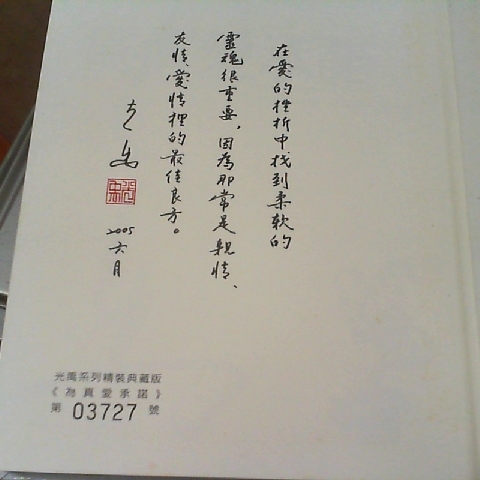 在愛的挫折中找到柔軟的
靈魂很重要，因為那常是親情、
友情、愛情裡的最佳良方。
光禹
2005 六月
光禹系列精裝典藏版
《為真愛承諾》
第 03727 號